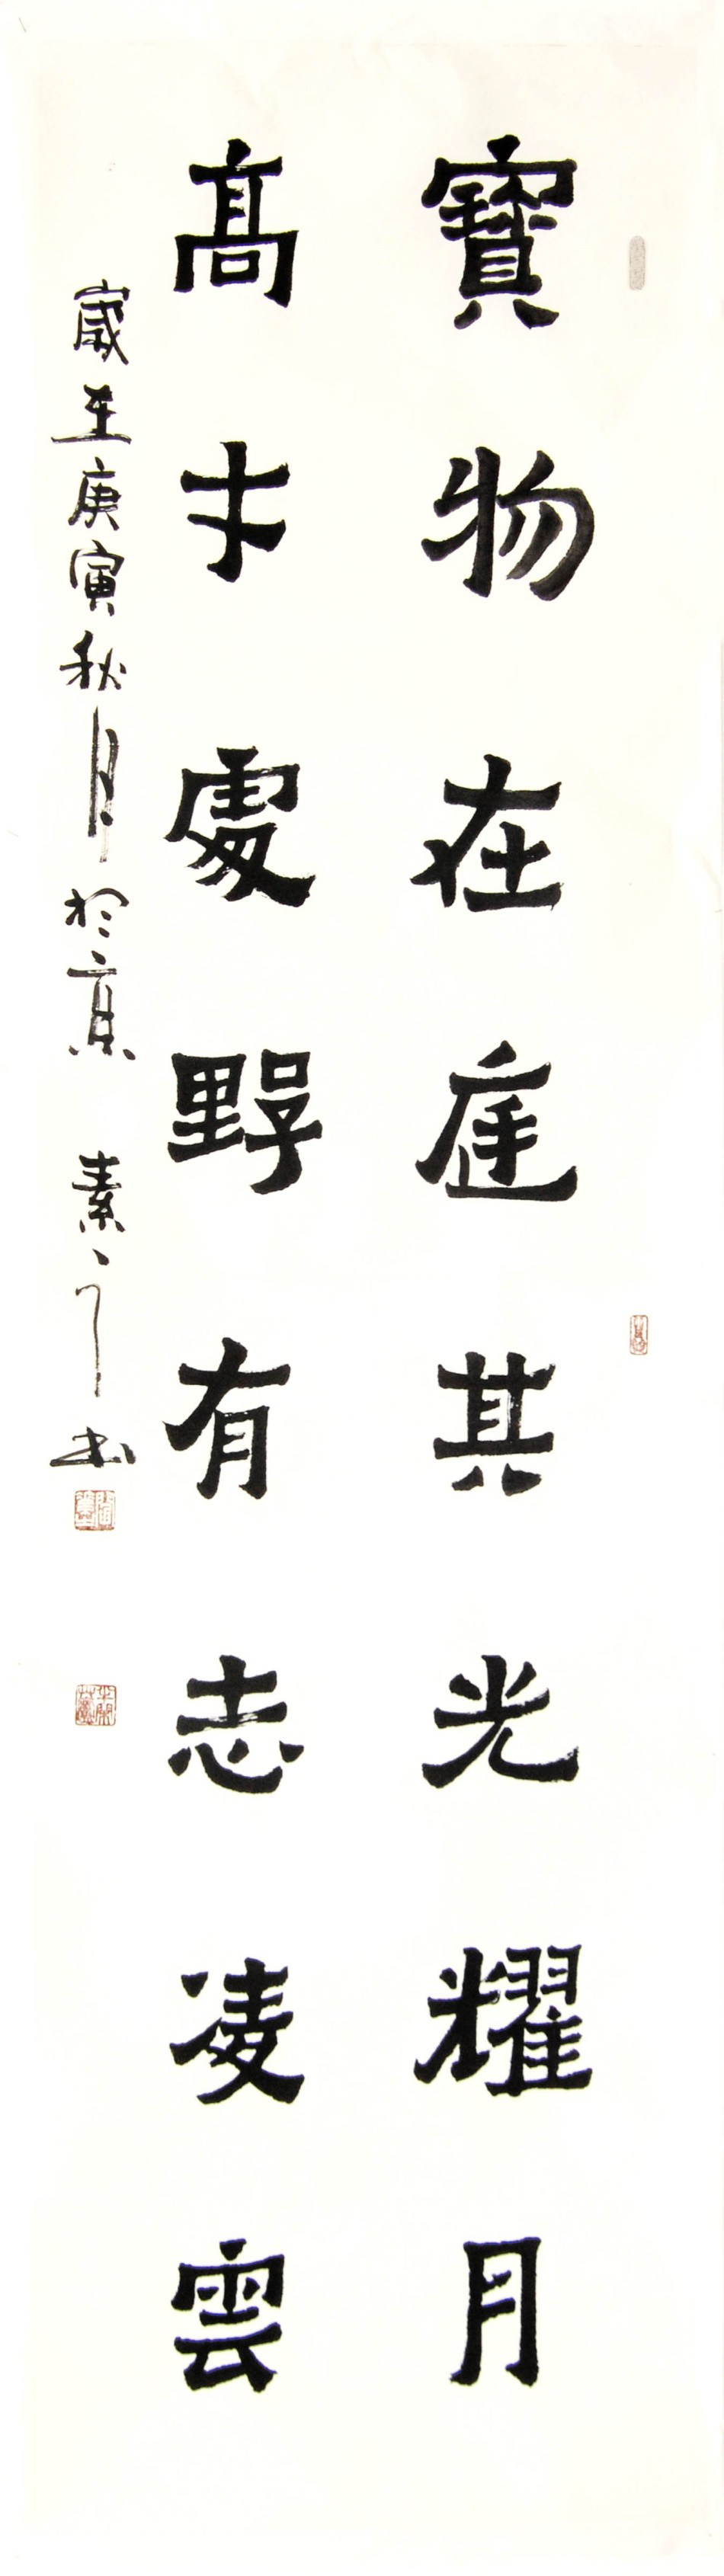 寶物在庭其光耀月
高才處野有志凌雲
歲至庚寅秋月於京 素 書